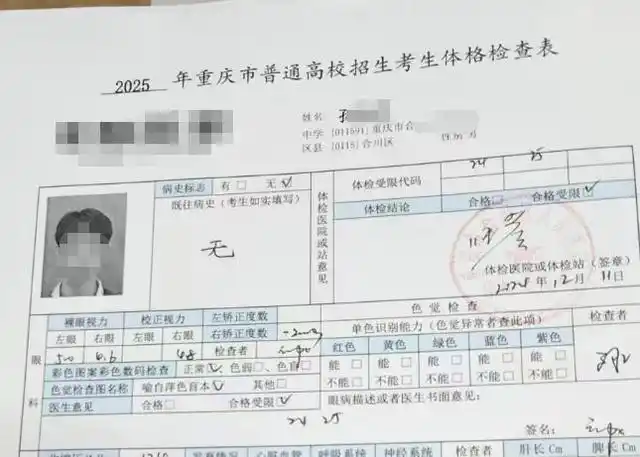 2025 年重庆市普通高校招生考生体格检查表
姓名
中学 [011591] 重庆市合
区县 [0115] 合川区
病史标志 有□ 无☑
既往病史（考生如实填写）
无
体检医院或站意见
体检受限代码 24 25
体检结论 合格□ 合格受限☑
体检医院或体检站（签章）
2024 年 12 月 11 日
眼科
裸眼视力 校正视力 左矫正度数
左眼 右眼 左眼 右眼 右矫正度数
5.0 4.8 检查者
彩色图案彩色数码检查 正常☑、色弱□、色盲□
色觉检查图名称 喻自萍色盲本☑ 其他□
医生意见 合格□ 合格受限☑
24 25
色觉检查
单色识别能力（色觉异常者查此项） 检查者
红色 黄色 绿色 蓝色 紫色
能□ 能□ 能□ 能□ 能□
不能□ 不能□ 不能□ 不能□ 不能□
眼病描述或者医生书面意见：
签名：
发育情况 心脏血管 呼吸系统 神经系统 检查者 肝长 Cm 脾长 Cm